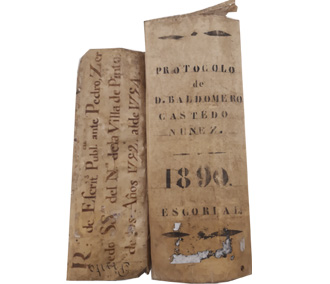 R.º de Escrit. Publ. ante Pedro, Zer
del N.º de la Villa de Pinto
de los Años 1792. al de 1794.
PROTOCOLO
de
D. BALDOMERO
CASTEDO
NUÑEZ.
1890.
ESCORIAL